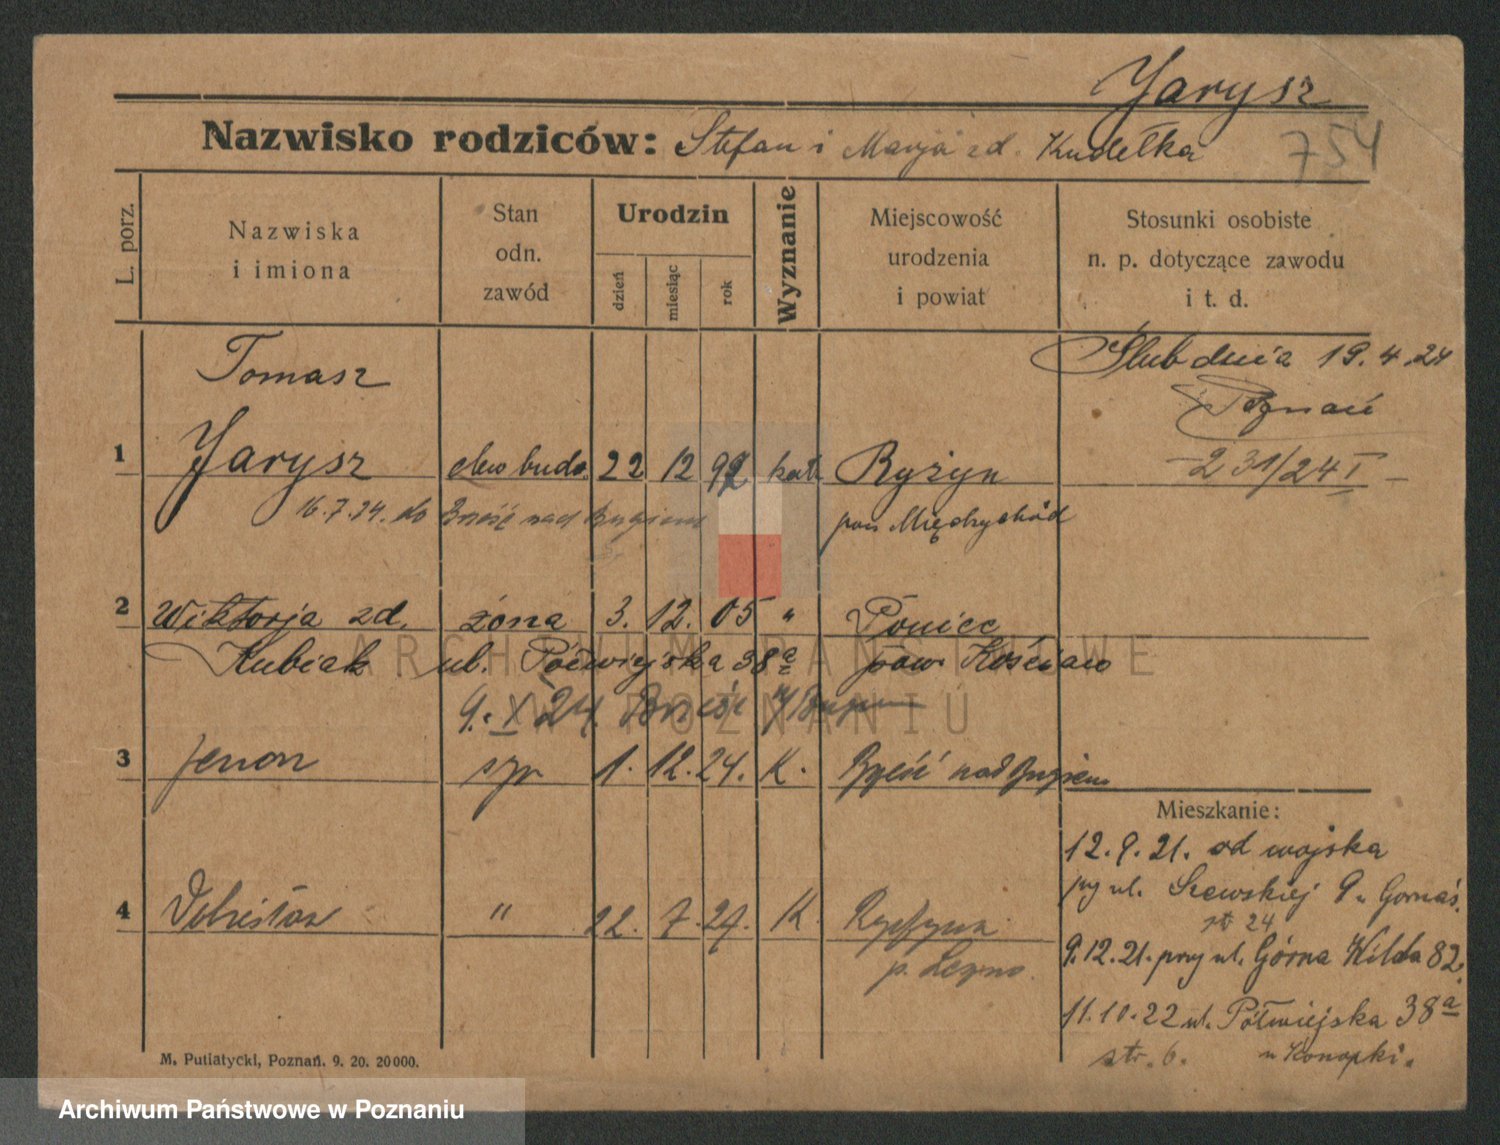 Jarysz
Nazwisko rodziców: Stefan i Marja zd. Kudełka
754
L. porz.
Nazwiska
i imiona
Stan
odn.
zawód
Urodzin
dzień
miesiąc
rok
Wyznanie
Miejscowość
urodzenia
i powiat
Stosunki osobiste
n. p. dotyczące zawodu
i t. d.
Tomasz
Ślub dnia 19.4.24
Poznań
1 Jarysz 22 12 92 kat Ryżyn
231/24 I
16.7.24. do Brześć nad Bugiem
pow Międzychód
2 Wiktorja zd. żona 3. 12. 05 " Poniec
Kubiak ul. Półwiejska 38a pow. Kościan
9. X 24. Brześć n/Bugiem
3 Zenon syn 1. 12. 24. K. Brześć nad Bugiem
Mieszkanie:
12.9.21. od wojska
przy ul. Szewskiej 9
str 24
4 " 22. 7. 27. K.
p. Leszno.
9.12.21. przy ul. Górna Wilda 82.
11.10.22 ul. Półwiejska 38a
str. 6. u Konopki.
M. Putiatycki, Poznań. 9. 20. 20000.
ARCHIWUM PAŃSTWOWE
W POZNANIU
Archiwum Państwowe w Poznaniu